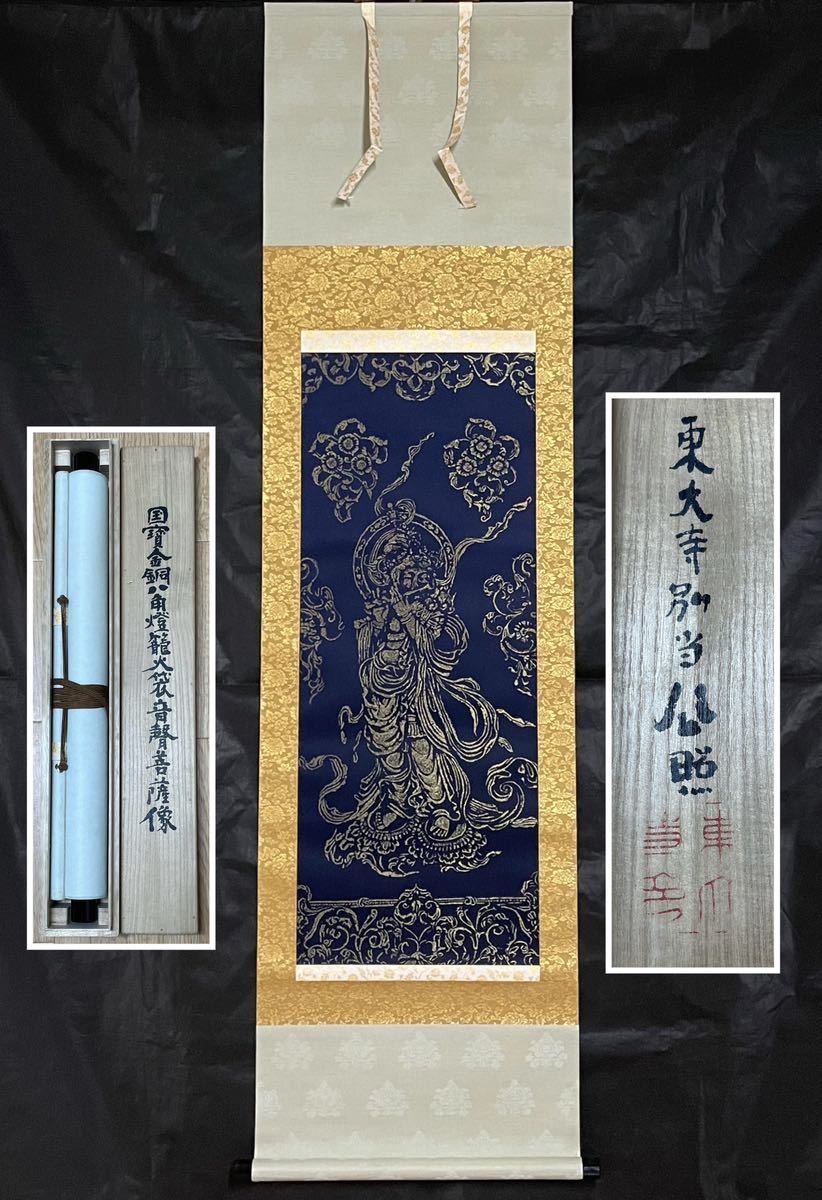 国寶金銅八角燈籠火袋音聲菩薩像
東大寺別当公照